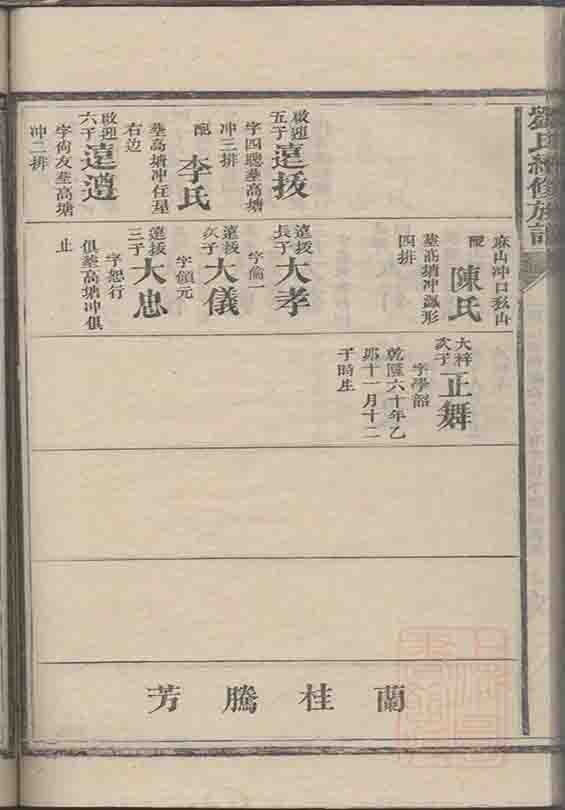 劉氏續修族譜
啟迎
五子
遠拔
字四聰塟高塘
冲三排
配
李氏
塟高塘冲任星
右边
啟迎
六子
遠遵
字尚友塟高塘
冲二排
麻山冲口秋山
配
陳氏
塟高塘冲瓢形
四排
遠拔
長子
大孝
字倫一
遠拔
次子
大儀
字領元
遠拔
三子
大忠
字恕行
俱塟高塘冲俱
止
大梓
次子
正舞
字學韶
乾隆六十年乙
夘十一月十二
子時生
蘭桂騰芳